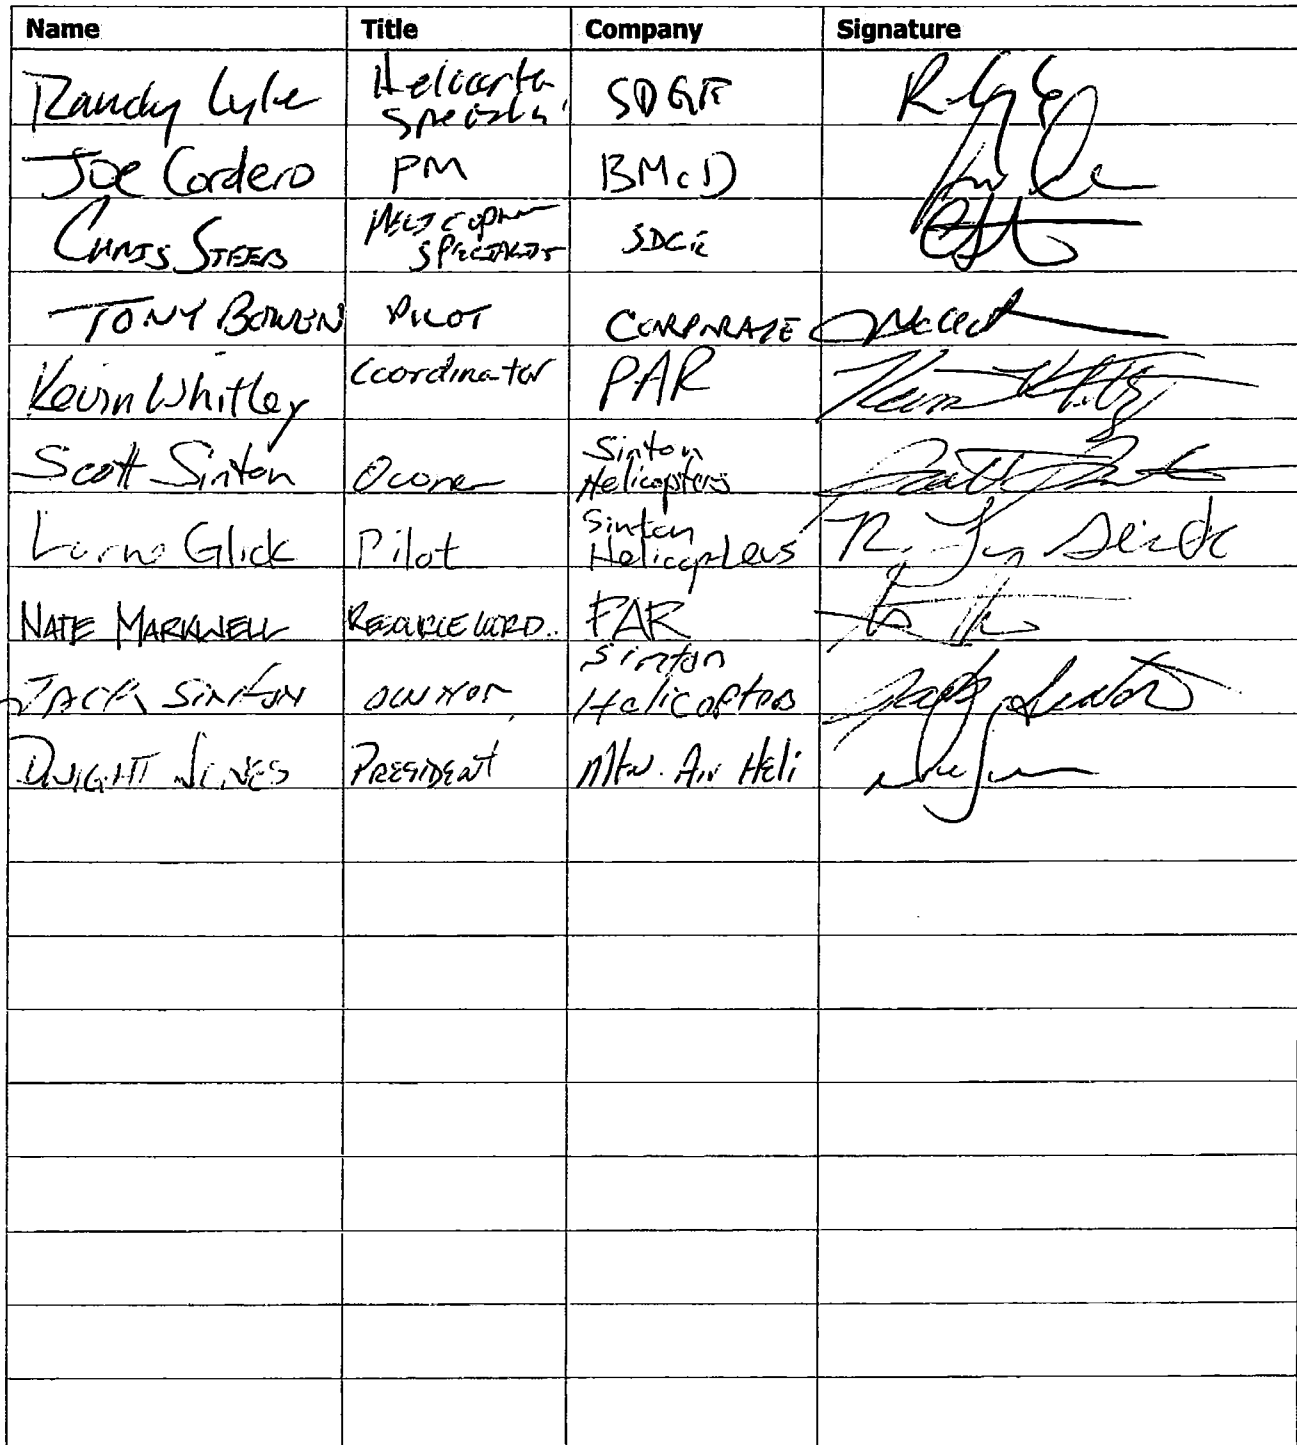 Name Title Company Signature
Randy Lyle Helicopter Specialist SDG&E R Lyle
Joe Cordero PM BMcD
CHRIS STEERS HELICOPTER SPECIALIST SDG&E
TONY BOWEN PILOT CORPORATE
Kevin Whitley Coordinator PAR Kevin Whitley
Scott Sinton Owner Sinton Helicopters Scott Sinton
Lorne Glick Pilot Sinton Helicopters
NATE MARKWELL RESOURCE COORD. PAR
JACK SINTON OWNER Sinton Helicopters Jack Sinton
DWIGHT JONES PRESIDENT Mtn. Air Heli